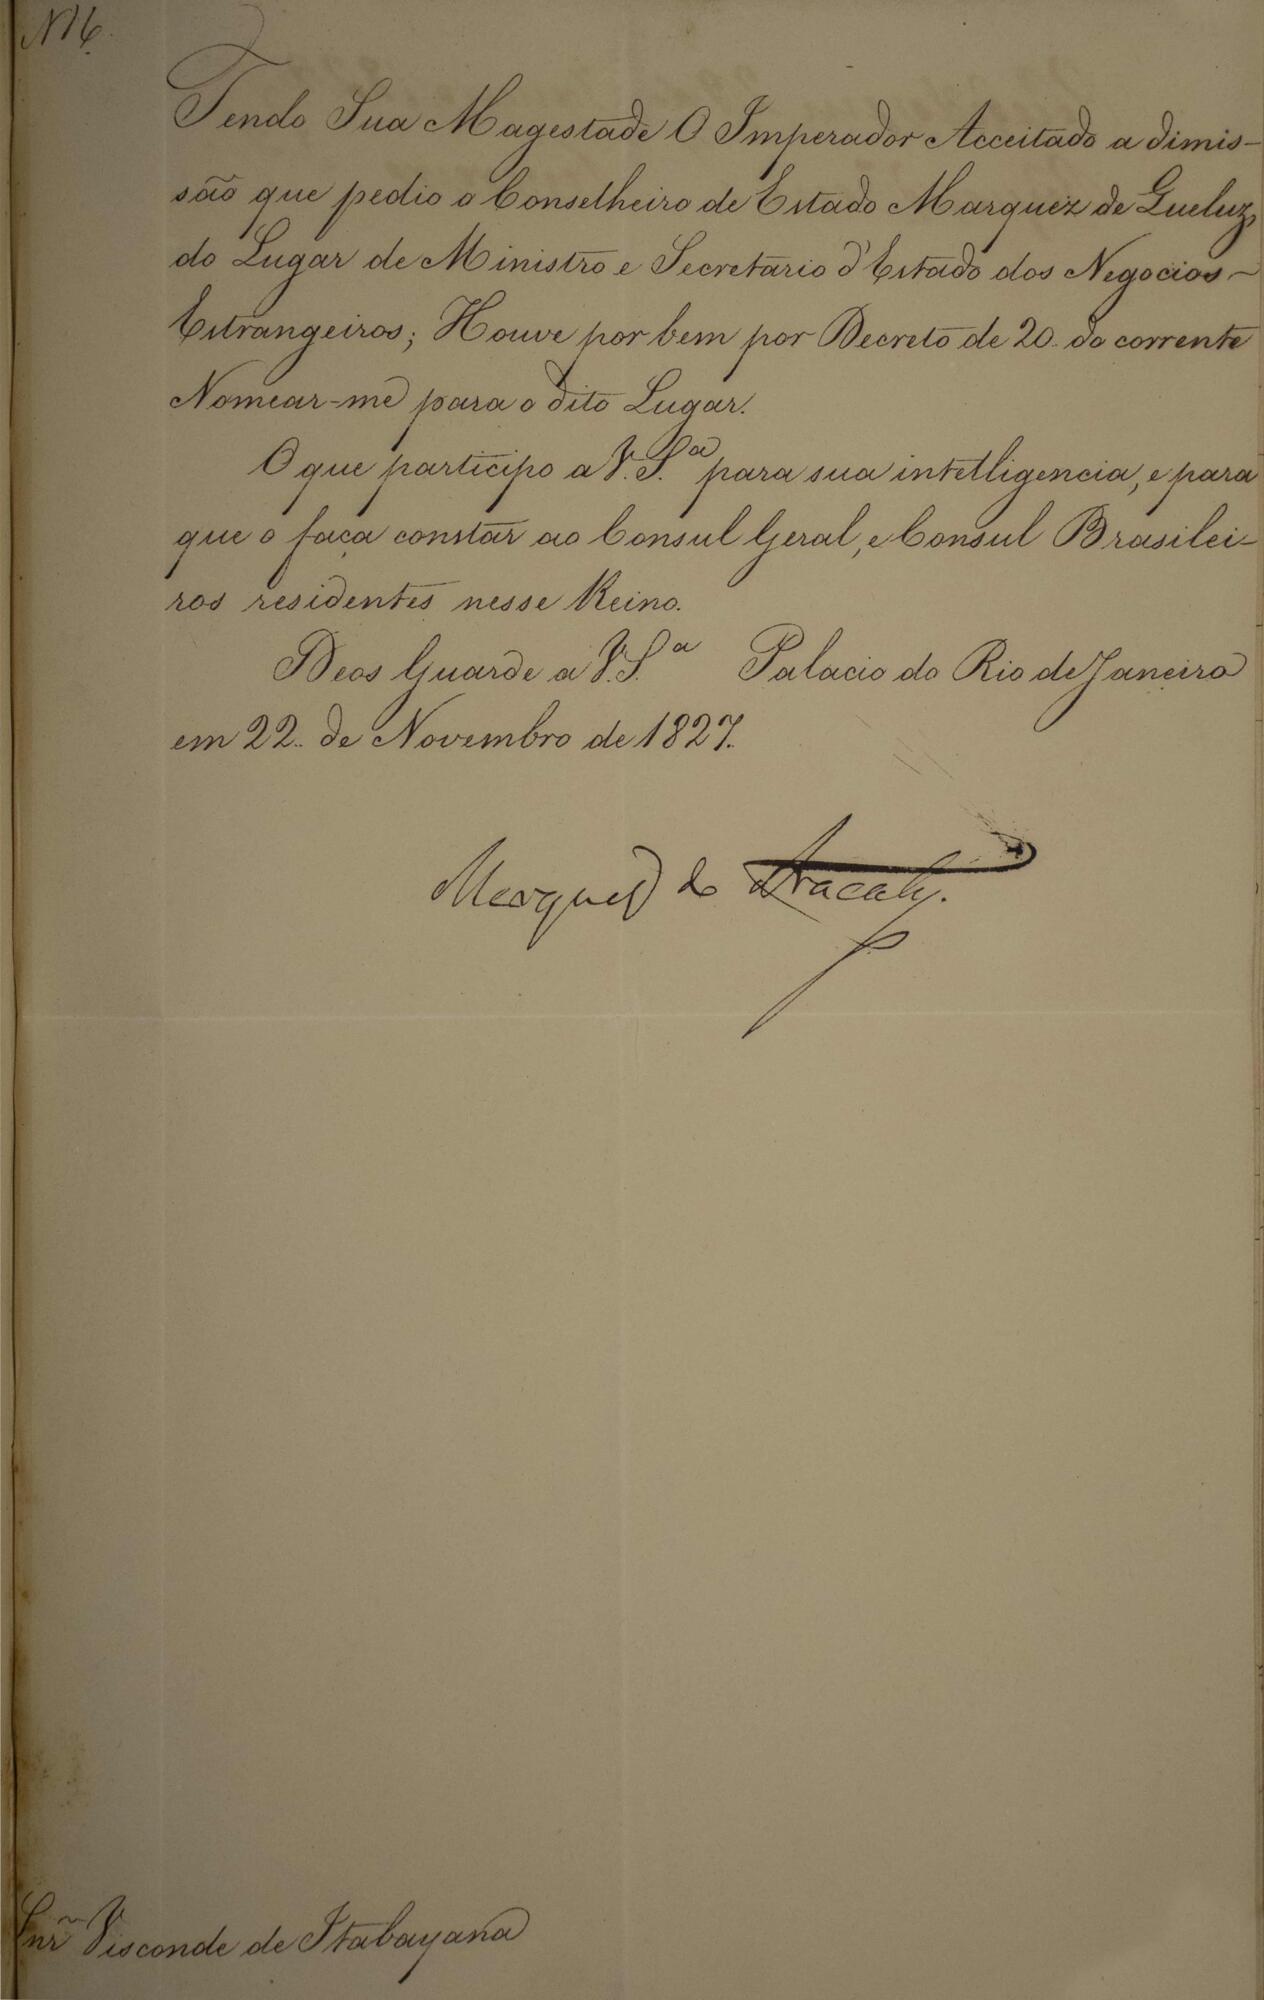 N 16.
Tendo Sua Magestade O Imperador Acceitado a dimis-
são que pedio o Conselheiro de Estado Marquez de Queluz,
do Lugar de Ministro e Secretario d'Estado dos Negocios
Estrangeiros; Houve por bem por Decreto de 20 do corrente
Nomear-me para o dito Lugar.
O que participo a V. S.ª para sua intelligencia, e para
que o faça constar ao Consul Geral, e Consul Brasilei-
ros residentes nesse Reino.
Deos Guarde a V. S.ª Palacio do Rio de Janeiro
em 22 de Novembro de 1827.
Marquez de Aracaty.
Snr Visconde de Itabayana